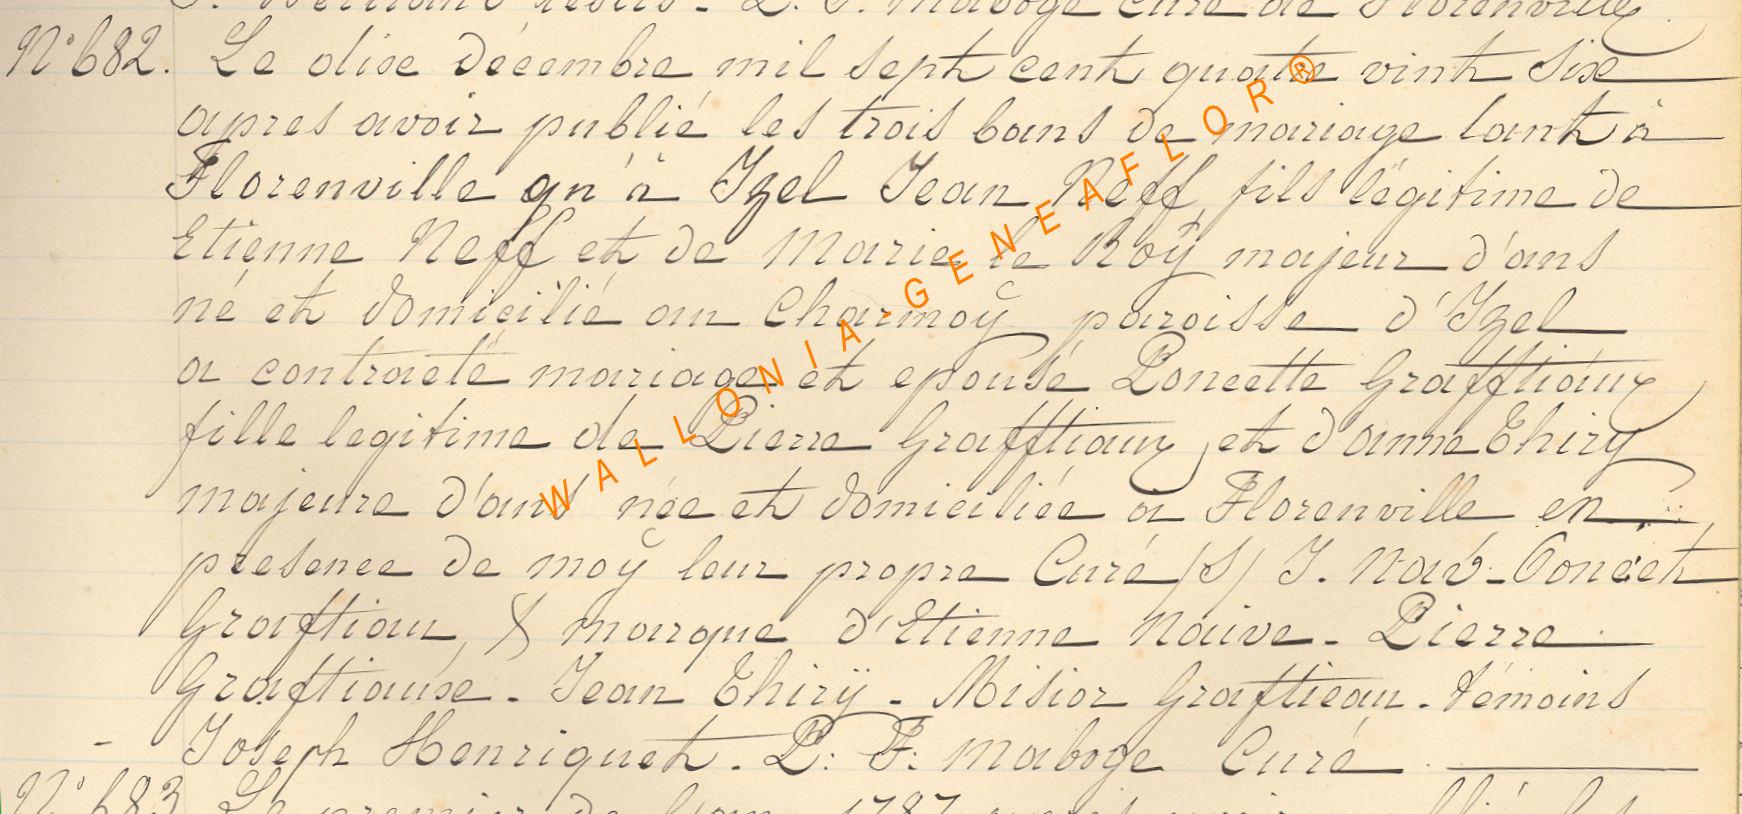 P. Maboge Curé de Florenville
N° 682. Le dixe décembre mil sept cent quatre vint sixe
apres avoir publié les trois bans de mariage tant à
Florenville qu'à Izel Jean Neff fils légitime de
Etienne Neff et de Marie le Roÿ majeur d'ans
né et domicilié au Charmoÿ paroisse d'Izel
a contracté mariage et epousé Poncette Grafftiaux
fille legitime de Pierre Grafftiaux, et d'anne Thiry
majeure d'ans née et domiciliée à Florenville en
presence de moÿ leur propre Curé (S) J. Poncet
Graftiau, X marque d'Etienne Naive - Pierre
Graftiause - Jean Thirÿ - Misior Graftieau - témoins
- Joseph Henriquet - P. F. Maboge Curé
N° 683 Le premier de l'an 1787
WALLONIA-GENEAFLOR®